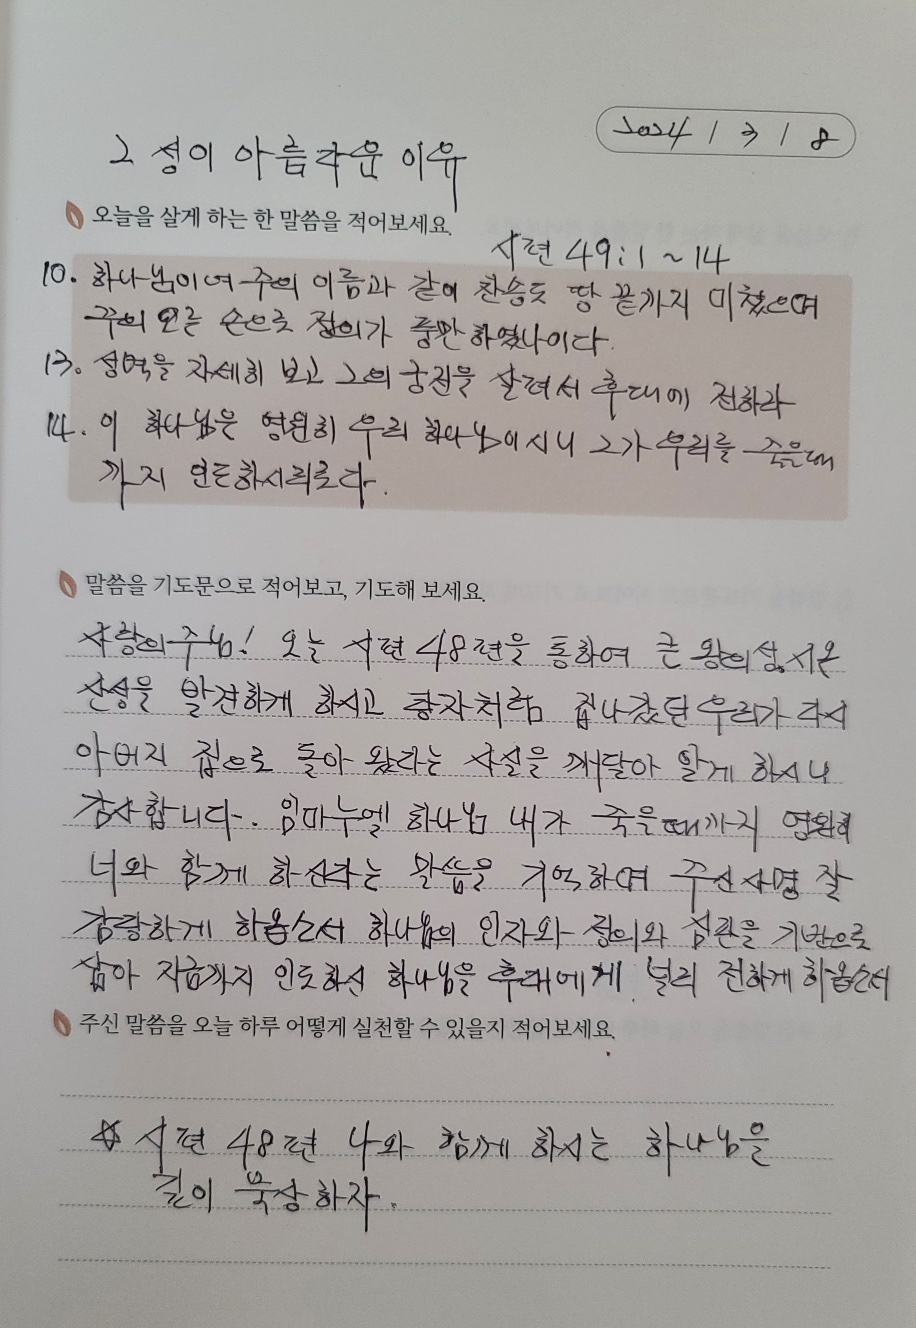 2024 / 3 / 8
그 성이 아름다운 이유
오늘을 살게 하는 한 말씀을 적어보세요.
시편 49:1~14
10. 하나님이여 주의 이름과 같이 찬송도 땅 끝까지 미쳤으며
주의 오른 손으로 정의가 충만하였나이다.
13. 성벽을 자세히 보고 그의 궁전을 살펴서 후대에 전하라
14. 이 하나님은 영원히 우리 하나님이시니 그가 우리를 죽을때
까지 인도하시리로다.
말씀을 기도문으로 적어보고, 기도해 보세요.
사랑의주님! 오늘 시편 48편을 통하여 큰 왕의성, 시온
산성을 발견하게 하시고 탕자처럼 집나갔던 우리가 다시
아버지 집으로 돌아 왔다는 사실을 깨달아 알게 하시니
감사합니다. 임마누엘 하나님 내가 죽을때까지 영원히
너와 함께 하신다는 말씀을 기억하며 주신사명 잘
감당하게 하옵소서 하나님의 인자와 정의와 심판을 기반으로
삼아 지금까지 인도하신 하나님을 후대에게 널리 전하게 하옵소서
주신 말씀을 오늘 하루 어떻게 실천할 수 있을지 적어보세요.
☆ 시편 48편 나와 함께 하시는 하나님을
깊이 묵상하자.